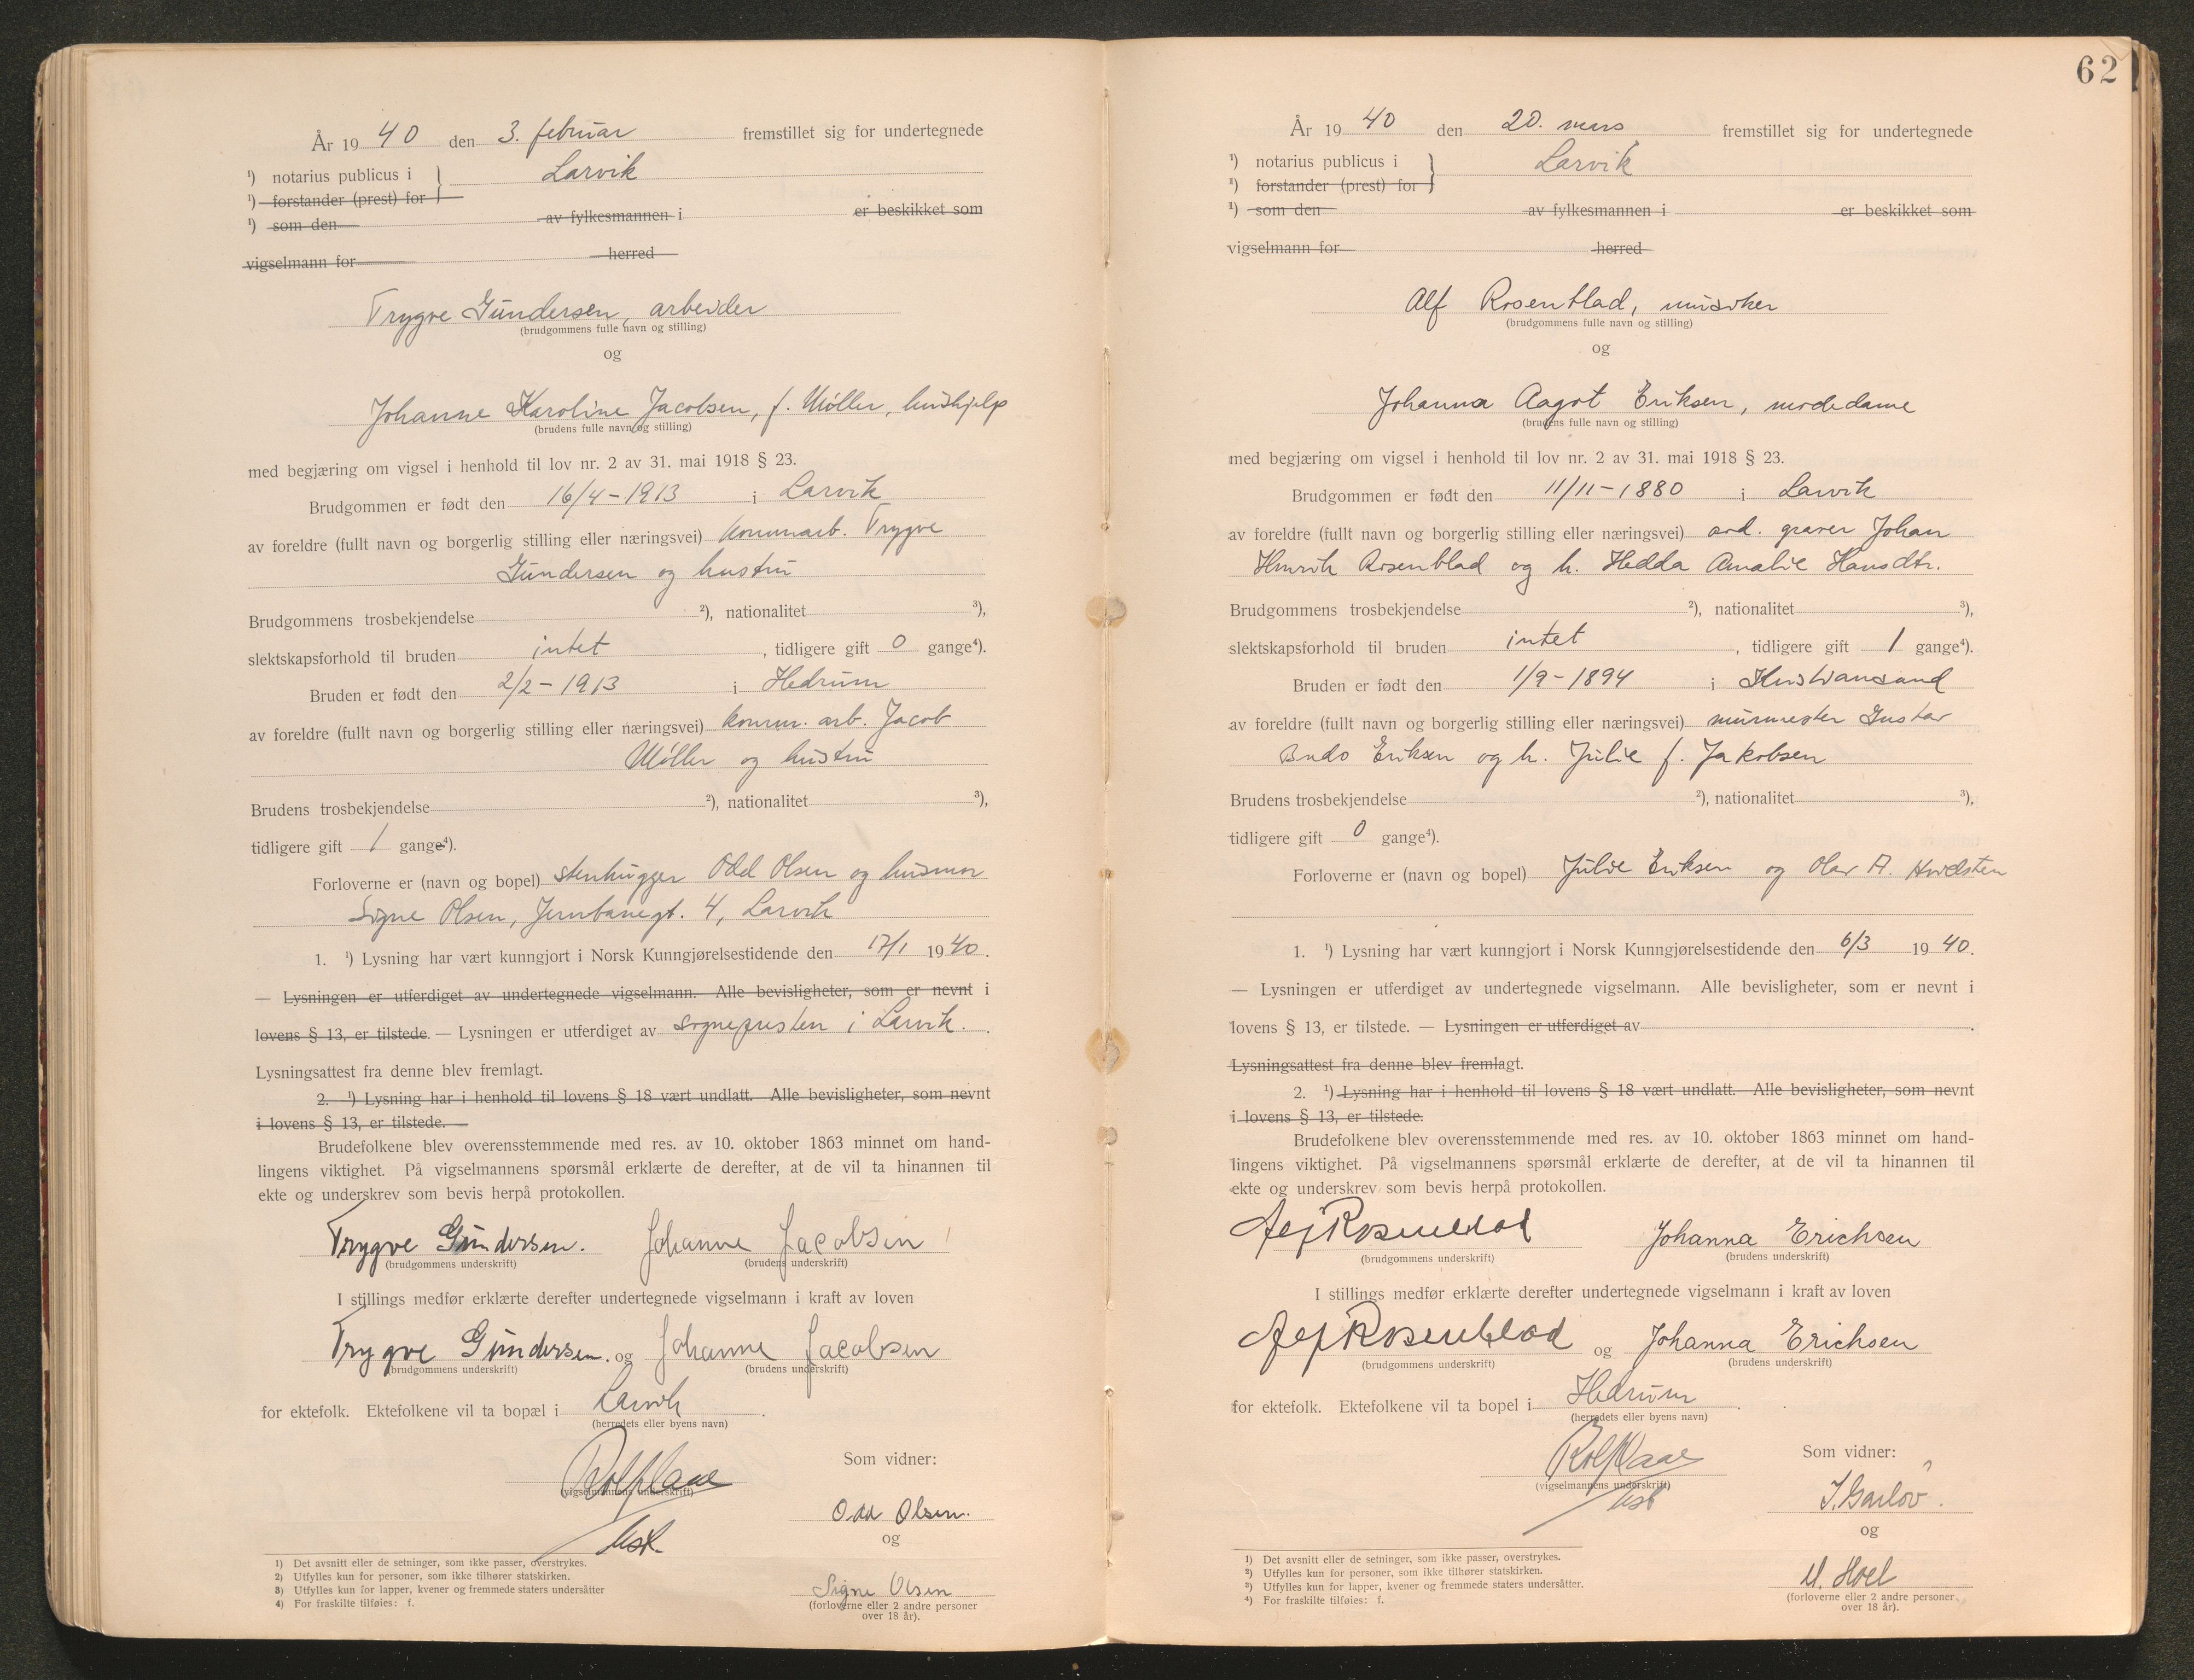 År 19 40 den 3. februar fremstillet sig for undertegnede
¹) notarius publicus i } Larvik
¹) forstander (prest) for
¹) som den av fylkesmannen i er beskikket som
vigselmann for herred
Trygve Gundersen, arbeider
(brudgommens fulle navn og stilling)
og
Johanne Karoline Jacobsen, f. Møller, hushjelp
(brudens fulle navn og stilling)
med begjæring om vigsel i henhold til lov nr. 2 av 31. mai 1918 § 23.
Brudgommen er født den 16/4-1913 i Larvik
av foreldre (fullt navn og borgerlig stilling eller næringsvei) kommarb. Trygve
Gundersen og hustru
Brudgommens trosbekjendelse ²), nationalitet ³),
slektskapsforhold til bruden intet, tidligere gift 0 gange⁴).
Bruden er født den 2/2-1913 i Hedrum
av foreldre (fullt navn og borgerlig stilling eller næringsvei) komm. arb. Jacob
Møller og hustru
Brudens trosbekjendelse ²), nationalitet ³),
tidligere gift 1 gange⁴).
Forloverne er (navn og bopel) stenhugger Odd Olsen og husmor
Signe Olsen, Jernbanegt. 4, Larvik
1. ¹) Lysning har vært kunngjort i Norsk Kunngjørelsestidende den 17/1 1940.
— Lysningen er utferdiget av undertegnede vigselmann. Alle bevisligheter, som er nevnt i
lovens § 13, er tilstede. — Lysningen er utferdiget av sognepresten i Larvik.
Lysningsattest fra denne blev fremlagt.
2. ¹) Lysning har i henhold til lovens § 18 vært undlatt. Alle bevisligheter, som nevnt
i lovens § 13, er tilstede.
Brudefolkene blev overensstemmende med res. av 10. oktober 1863 minnet om hand-
lingens viktighet. På vigselmannens spørsmål erklærte de derefter, at de vil ta hinannen til
ekte og underskrev som bevis herpå protokollen.
Trygve Gundersen. Johanne Jacobsen
(brudgommens underskrift) (brudens underskrift)
I stillings medfør erklærte derefter undertegnede vigselmann i kraft av loven
Trygve Gundersen. og Johanne Jacobsen
(brudgommens underskrift) (brudens underskrift)
for ektefolk. Ektefolkene vil ta bopæl i Larvik.
(herredets eller byens navn)
Som vidner:
(vigselmannens underskrift)
Odd Olsen.
og
Signe Olsen
(forloverne eller 2 andre personer
over 18 år).
1) Det avsnitt eller de setninger, som ikke passer, overstrykes.
2) Utfylles kun for personer, som ikke tilhører statskirken.
3) Utfylles kun for lapper, kvener og fremmede staters undersåtter
4) For fraskilte tilføies: f.
62
År 19 40 den 20. mars fremstillet sig for undertegnede
¹) notarius publicus i } Larvik
¹) forstander (prest) for
¹) som den av fylkesmannen i er beskikket som
vigselmann for herred
Alf Rosenblad, musiker
(brudgommens fulle navn og stilling)
og
Johanna Aagot Eriksen, modedame
(brudens fulle navn og stilling)
med begjæring om vigsel i henhold til lov nr. 2 av 31. mai 1918 § 23.
Brudgommen er født den 11/11-1880 i Larvik
av foreldre (fullt navn og borgerlig stilling eller næringsvei) graver Johan
Henrik Rosenblad og h. Hedda Amalie Hansdtr.
Brudgommens trosbekjendelse ²), nationalitet ³),
slektskapsforhold til bruden intet, tidligere gift 1 gange⁴).
Bruden er født den 1/9-1894 i Kristiansand
av foreldre (fullt navn og borgerlig stilling eller næringsvei) murmester Gustav
Eriksen og h. Julie f. Jakobsen
Brudens trosbekjendelse ²), nationalitet ³),
tidligere gift 0 gange⁴).
Forloverne er (navn og bopel) Julie Eriksen og Olav A. Hvidsten
1. ¹) Lysning har vært kunngjort i Norsk Kunngjørelsestidende den 6/3 1940.
— Lysningen er utferdiget av undertegnede vigselmann. Alle bevisligheter, som er nevnt i
lovens § 13, er tilstede. — Lysningen er utferdiget av.
Lysningsattest fra denne blev fremlagt.
2. ¹) Lysning har i henhold til lovens § 18 vært undlatt. Alle bevisligheter, som nevnt
i lovens § 13, er tilstede.
Brudefolkene blev overensstemmende med res. av 10. oktober 1863 minnet om hand-
lingens viktighet. På vigselmannens spørsmål erklærte de derefter, at de vil ta hinannen til
ekte og underskrev som bevis herpå protokollen.
Alf Rosenblad Johanna Erichsen
(brudgommens underskrift) (brudens underskrift)
I stillings medfør erklærte derefter undertegnede vigselmann i kraft av loven
Alf Rosenblad og Johanna Erichsen
(brudgommens underskrift) (brudens underskrift)
for ektefolk. Ektefolkene vil ta bopel i Hedrum.
(herredets eller byens navn)
Som vidner:
(vigselmannens underskrift)
og
M. Hoel
(forloverne eller 2 andre personer
over 18 år).
1) Det avsnitt eller de setninger, som ikke passer, overstrykes.
2) Utfylles kun for personer, som ikke tilhører statskirken.
3) Utfylles kun for lapper, kvener og fremmede staters undersåtter.
4) For fraskilte tilføies: f.